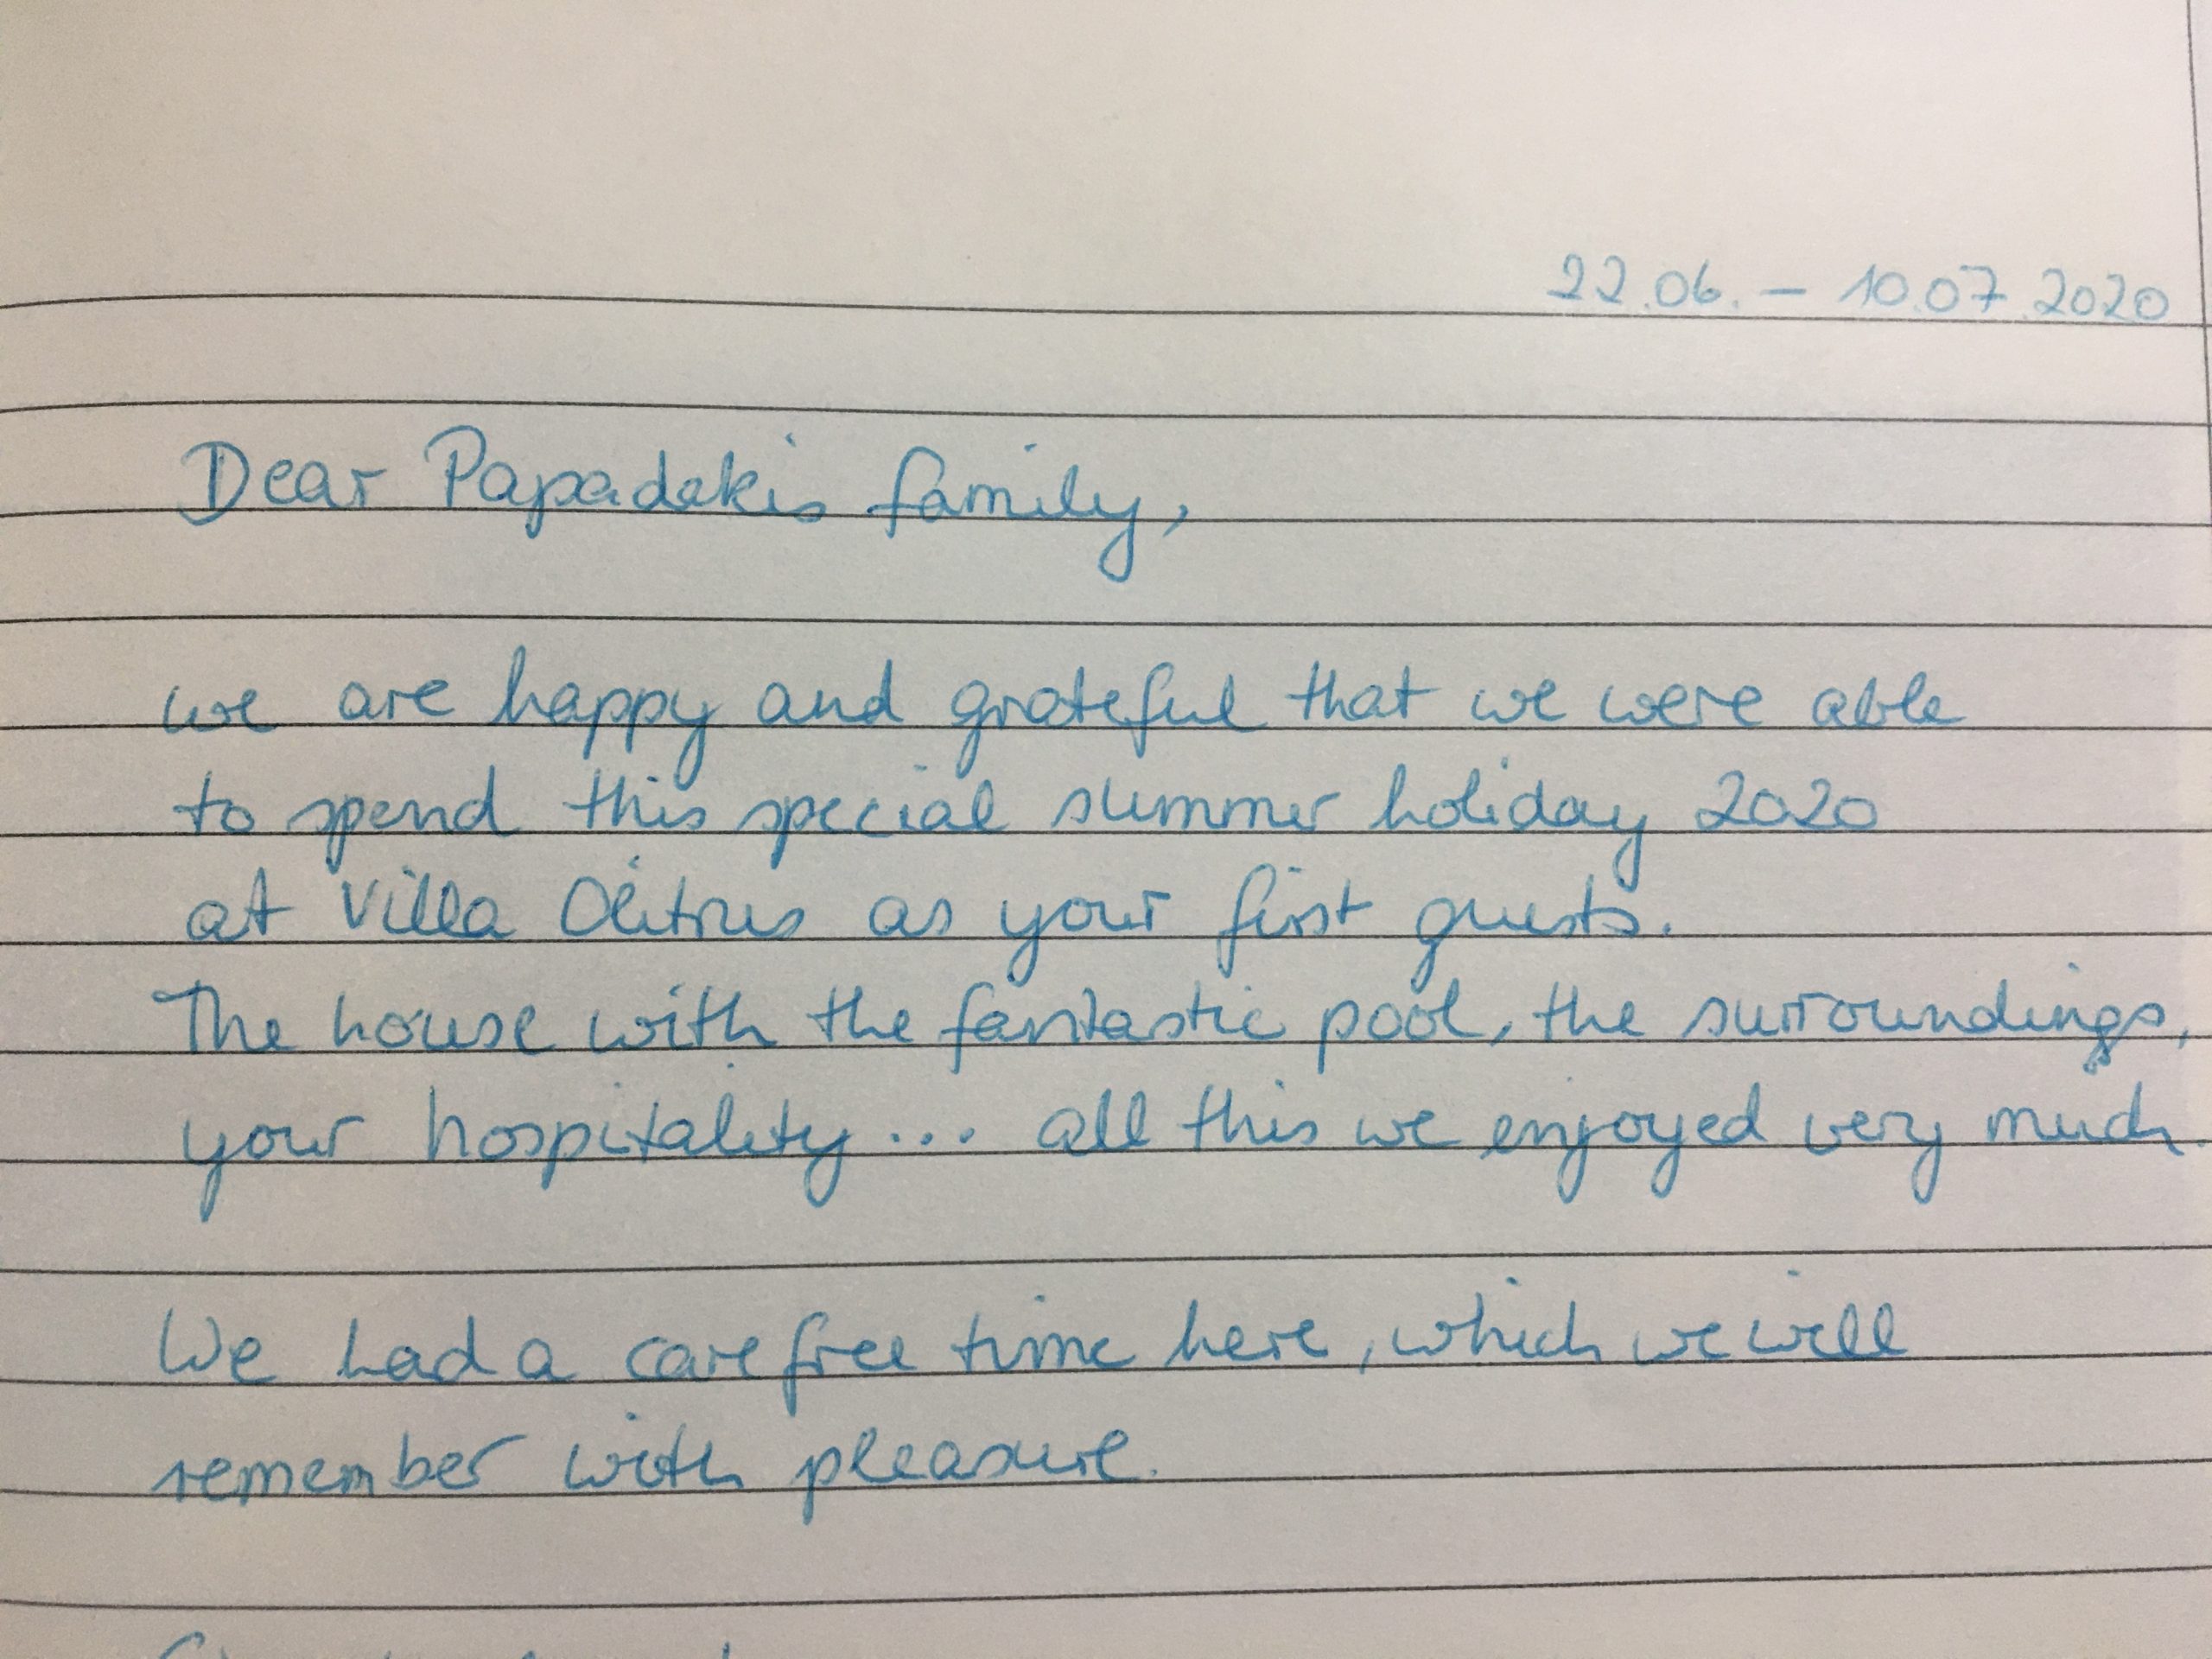 22.06. – 10.07.2020
Dear Papadakis family,
we are happy and grateful that we were able
to spend this special summer holiday 2020
at Villa as your first guests.
The house with the fantastic pool, the surroundings,
your hospitality... all this we enjoyed very much.
We had a carefree time here, which we will
remember with pleasure.